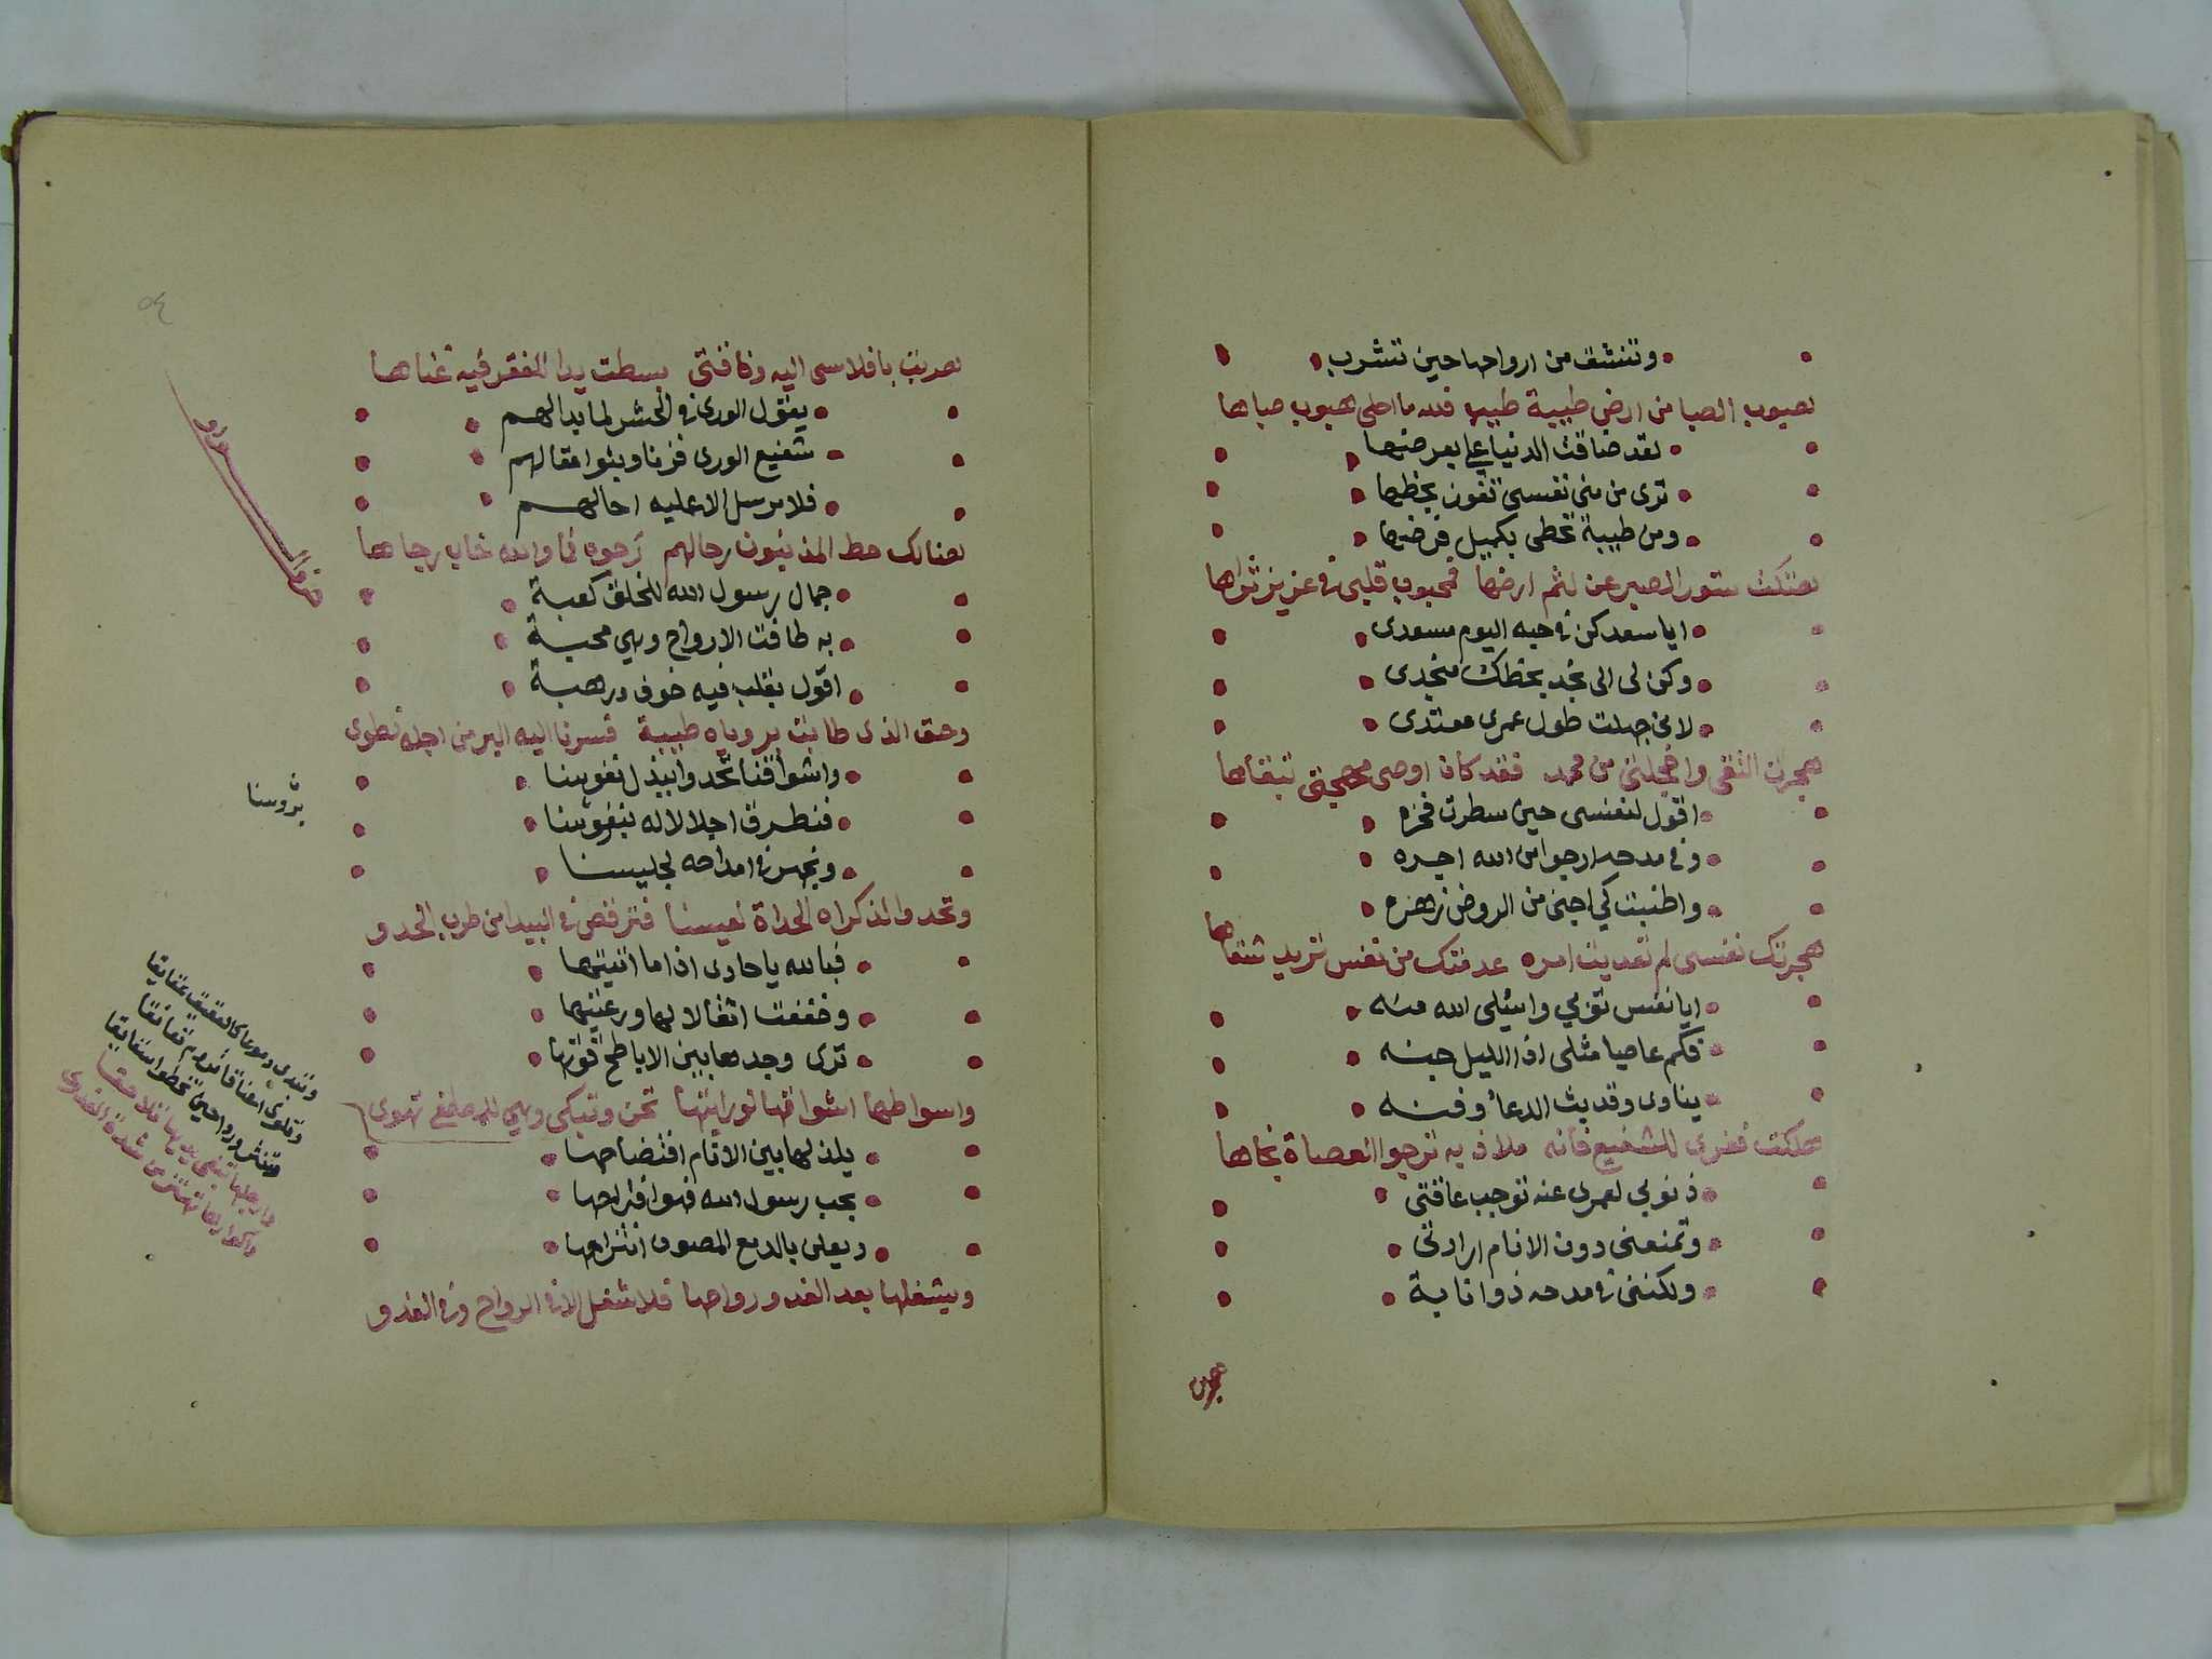 وتنشق من ارواحها حين تشرب
هبوب الصبا من ارض طيبة طيبها فلله ما احلى هبوب صباها
لقد ضاقت الدنيا علي بعرضها
ترى من منى نفسي تفوز بحظها
ومن طيبة تحظى بكميل فرضها
هتكت ستور الصبر عن لثم ارضها فمحبوب قلبي في عزيز ثراها
ايا سعد كن في حبه اليوم مسعدى
وكن لى الى نجد بحظك منجدى
لانى جهلت طول عمرى معتدى
هجرت التقى واخجلتى من محمد فقد كان اوصى مهجتى بتقاها
اقول لنفسى حين سطرت فخره
وفى مدحه ارجوا من الله اجره
واطنبت كي اجنى من الروض زهره
هجرتك نفسى لم تعديت امره عدمتك من نفس تزيد شقاها
ايا نفس توبي واسئلى الله منه
فكم عاصيا مثلى اذا الليل جنه
ينادى وقد بث الدعا وفنه
هلكت ففرى للشفيع فانه ملاذ به ترجوا العصاة نجاها
ذنوبي لعمرى عنه توجب عاقتى
وتمنعنى دون الانام ارادتى
ولكننى فى مدحه ذوانابة
هربت
هربت بافلاسى اليه وفاقتى بسطت يدا للفقر فيه غناها
يقول الورى فى الحشر لما بدا لهم
شفيع الورى فزنا وبثوا مقالهم
فلا مرسل الا عليه احالهم
هنالك حط المذنبون رحالهم رجوه فما والله خاب رجاها
حرف الواو
جمال رسول الله للخلق كعبة
به طافت الارواح وهي محبة
اقول بقلب فيه خوف ورهبة
وحق الذى طابت برؤياه طيبة قسرنا اليه البر من اجله نطوى
واشواقنا تحدوا ببذل نفوسنا
فنطرق اجلالا له بنفوسنا
برؤسنا
ونجهر فى امداحه لجليسنا
وتحدو بالذكراه الحداة لعيسنا فترقص فى البيدا من طرب الحدو
فبالله يا حادى اذا ما اتيتها
وخففت اثقالا لها ورعيتها
ترى وجدها بين الاباطح قوتها
واسواطها اشواقها لو رايتها تحن وتبكى وهي للمصطفى تهوى
وتبدى دموعا كالعقيق عقايقا
وتلوى اعناقا تروم تعانقا
يلذ لها بين الانام افتضاحها
بحب رسول الله فهو اقتراحها
ويعلن بالدمع المصون انتزاحها
ويشغلها بعد الغدو رواحها فلا شغل الا فى الرواح وفى الغدو